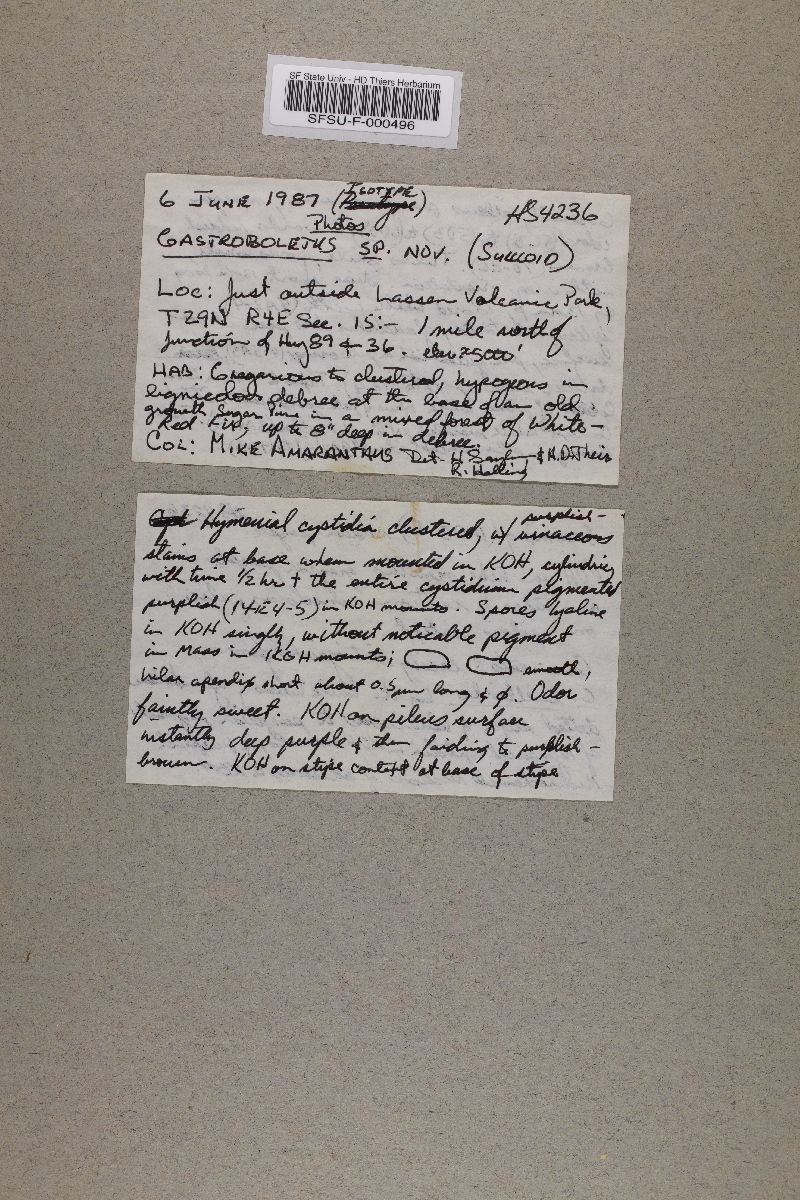 SF State Univ - HD Thiers Herbarium
SFSU-F-000496
6 JUNE 1987 (ISOTYPE Paratype) HS4236
Photos
GASTROBOLETUS SP. NOV. (SUILLOID)
LOC: Just outside Lassen Volcanic Park,
T29N R4E Sec. 15:- 1 mile north of
Junction of Hwy 89 & 36. elev ≈ 5000'
HAB: Gregarious to clustered, hypogeous in
lignicolous debree at the base of an old
growth Sugar Pine in a mixed forest of White-
Red Fir, up to 8" deep in debree.
COL: MIKE AMARANTHUS Det. H Saylor & H.D. Thiers
R. Halling
Hymenial cystidia clustered, w/ purplish-
vinaceous
stains at base when mounted in KOH, cylindric,
with time 1/2 hr + the entire cystidium pigmented
purplish (14E4-5) in KOH mounts. Spores hyaline
in KOH singly, without noticable pigment
in mass in KOH mounts; smooth,
hilar apendix short about 0.5µm long & ø. Odor
faintly sweet. KOH on pileus surface
instantly deep purple & then fading to purplish-
brown. KOH on stipe context at base of stipe